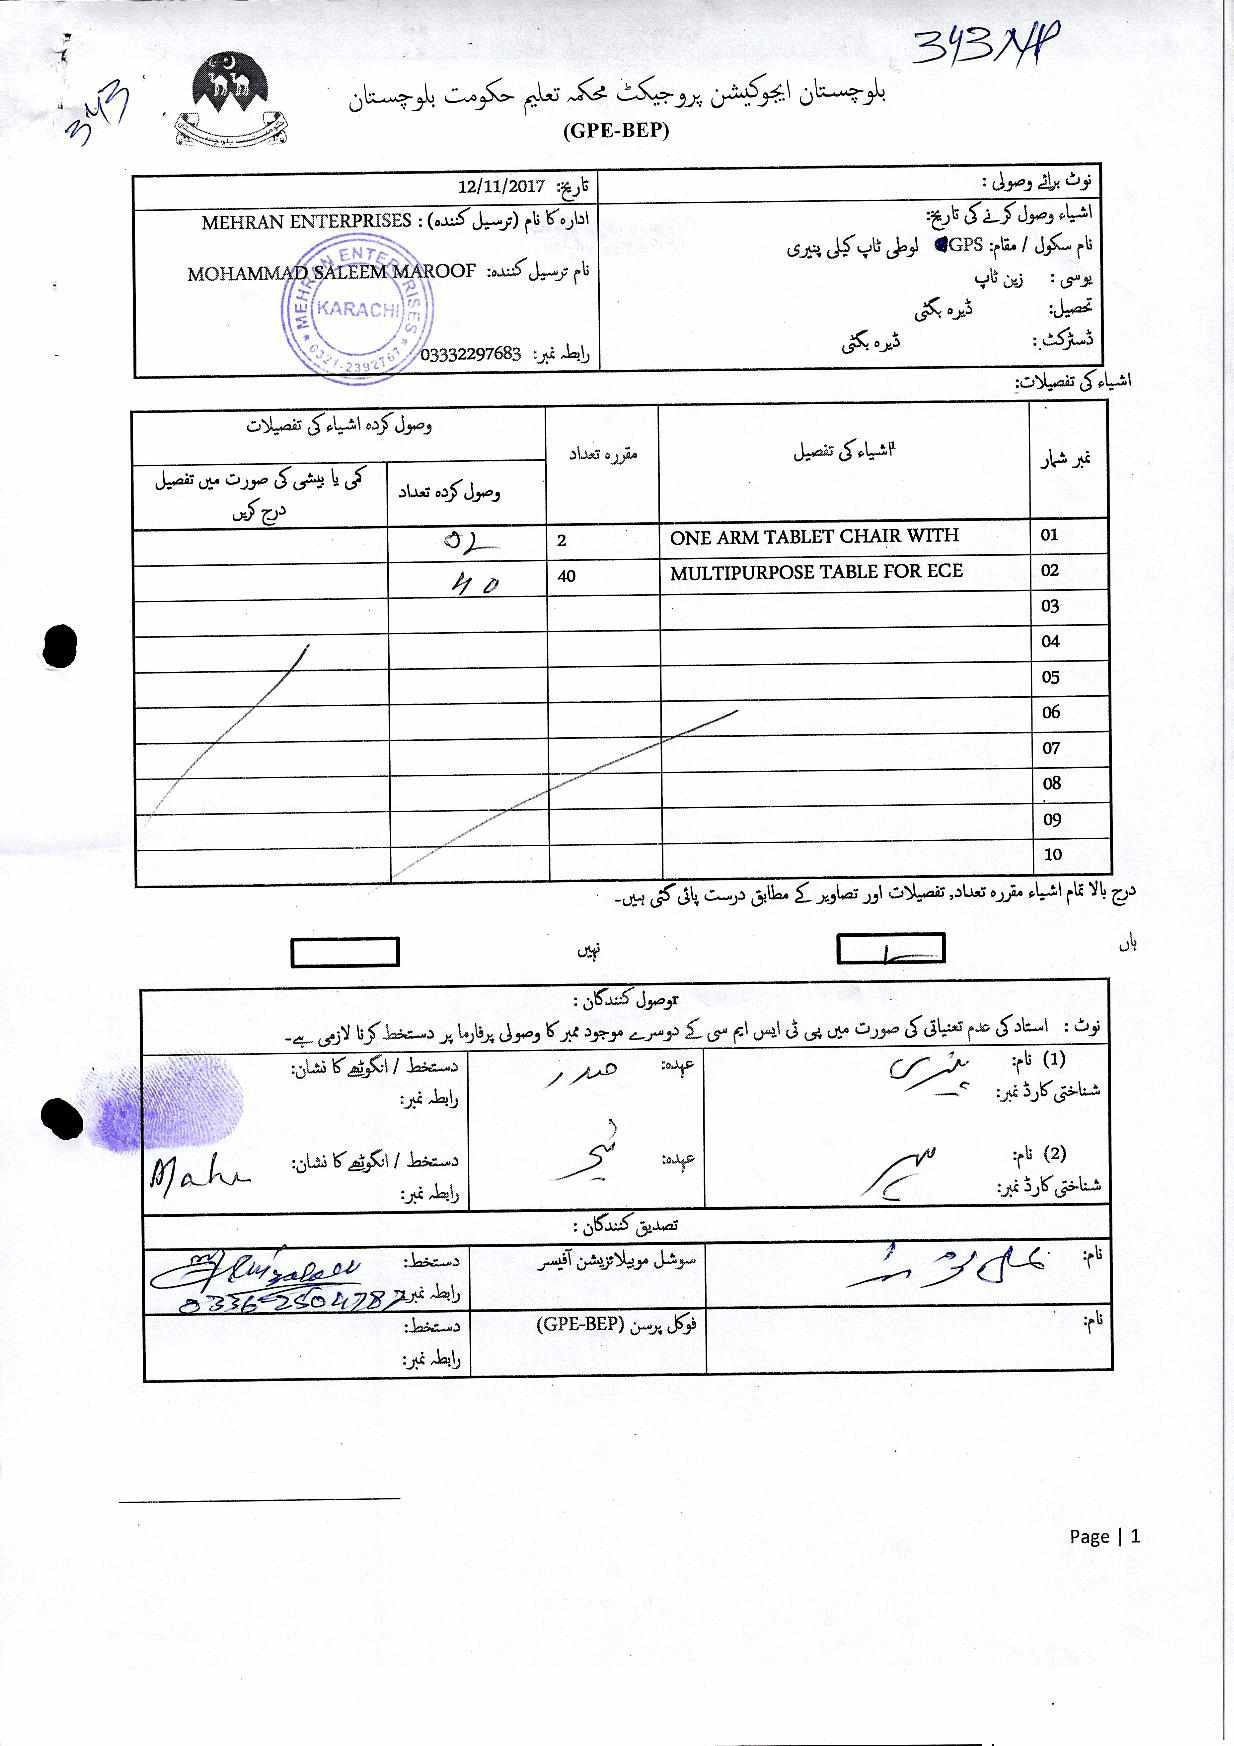 343 N/P
343
بلوچستان ایجوکیشن پروجیکٹ محکمہ تعلیم حکومت بلوچستان
(GPE-BEP)
نوٹ برائے وصولی :
تاریخ: 12/11/2017
اشیاء وصول کرنے کی تاریخ:
نام سکول / مقام: GPS لوطی ٹاپ کیلی پنیری
یوسی : زین ٹاپ
تحصیل: ڈیرہ بگٹی
ڈسٹرکٹ: ڈیرہ بگٹی
ادارہ کا نام (ترسیل کنندہ) : MEHRAN ENTERPRISES
نام ترسیل کنندہ: MOHAMMAD SALEEM MAROOF
رابطہ نمبر: 03332297683
MEHRAN ENTERPRISES
KARACHI
0321-2392767
اشیاء کی تفصیلات:
نمبر شمار
اشیاء کی تفصیل
مقررہ تعداد
وصول کردہ اشیاء کی تفصیلات
وصول کردہ تعداد
کمی یا بیشی کی صورت میں تفصیل درج کریں
01 ONE ARM TABLET CHAIR WITH 2 02
02 MULTIPURPOSE TABLE FOR ECE 40 40
03
04
05
06
07
08
09
10
درج بالا تمام اشیاء مقررہ تعداد, تفصیلات اور تصاویر کے مطابق درست پائی گئی ہیں۔
ہاں
نہیں
وصول کنندگان :
نوٹ : استاد کی عدم تعیناتی کی صورت میں پی ٹی ایس ایم سی کے دوسرے موجود ممبر کا وصولی پرفارما پر دستخط کرنا لازمی ہے۔
(1) نام:
شناختی کارڈ نمبر:
عہدہ: صدر
دستخط / انگوٹھے کا نشان:
رابطہ نمبر:
(2) نام:
شناختی کارڈ نمبر:
عہدہ:
دستخط / انگوٹھے کا نشان:
رابطہ نمبر:
تصدیق کنندگان :
نام:
سوشل موبیلائزیشن آفیسر
دستخط:
رابطہ نمبر: 0336-2504787
نام:
فوکل پرسن (GPE-BEP)
دستخط:
رابطہ نمبر:
Page | 1